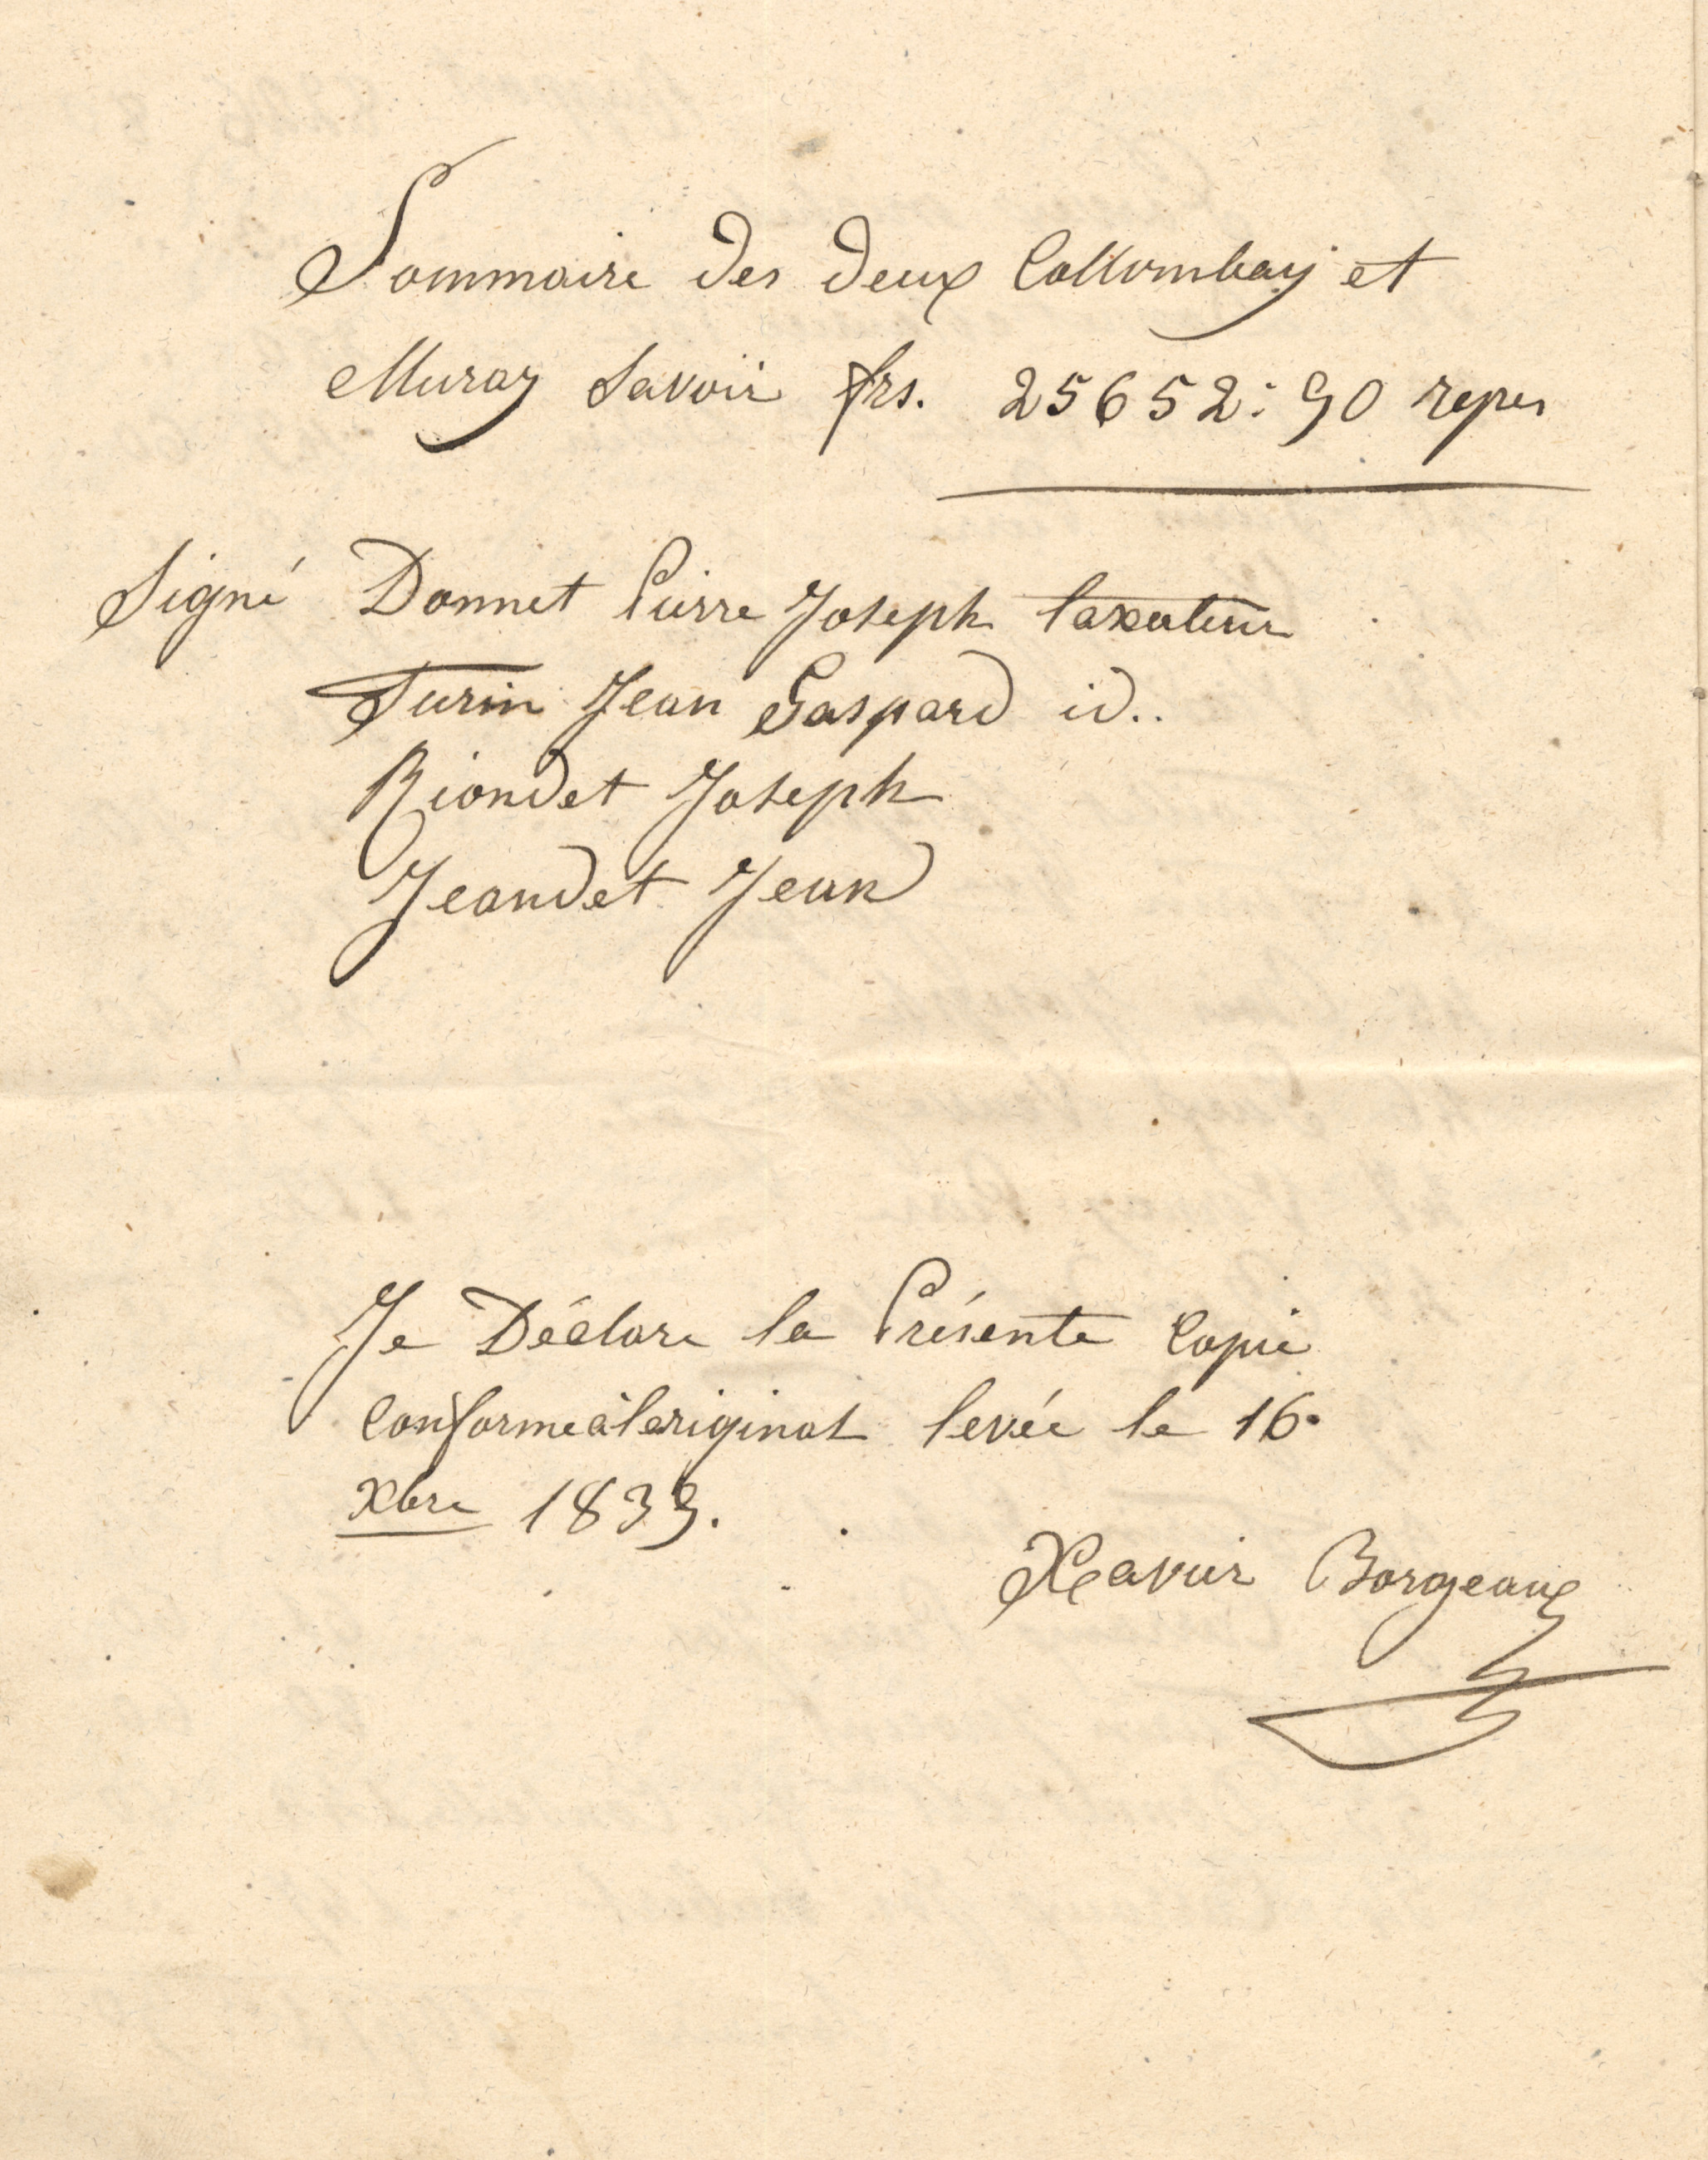 Sommaire des deux Collombay et
Muraz Savoir frs. 25652: 90 repes
Signé Donnet Pierre Joseph taxateur
Turin Jean Gaspard id..
Riondet Joseph
Jeandet Jean
Je Déclare la Présente Copie
Conforme à loriginal levée le 16.
Xbre 1839.
Xavier Borgeaux